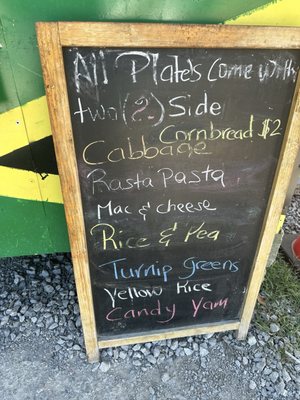 All Plate's Come with
two (2) Side
Cornbread $2
Cabbage
Rasta Pasta
Mac & cheese
Rice & Peas
Turnip greens
Yellow Rice
Candy Yam